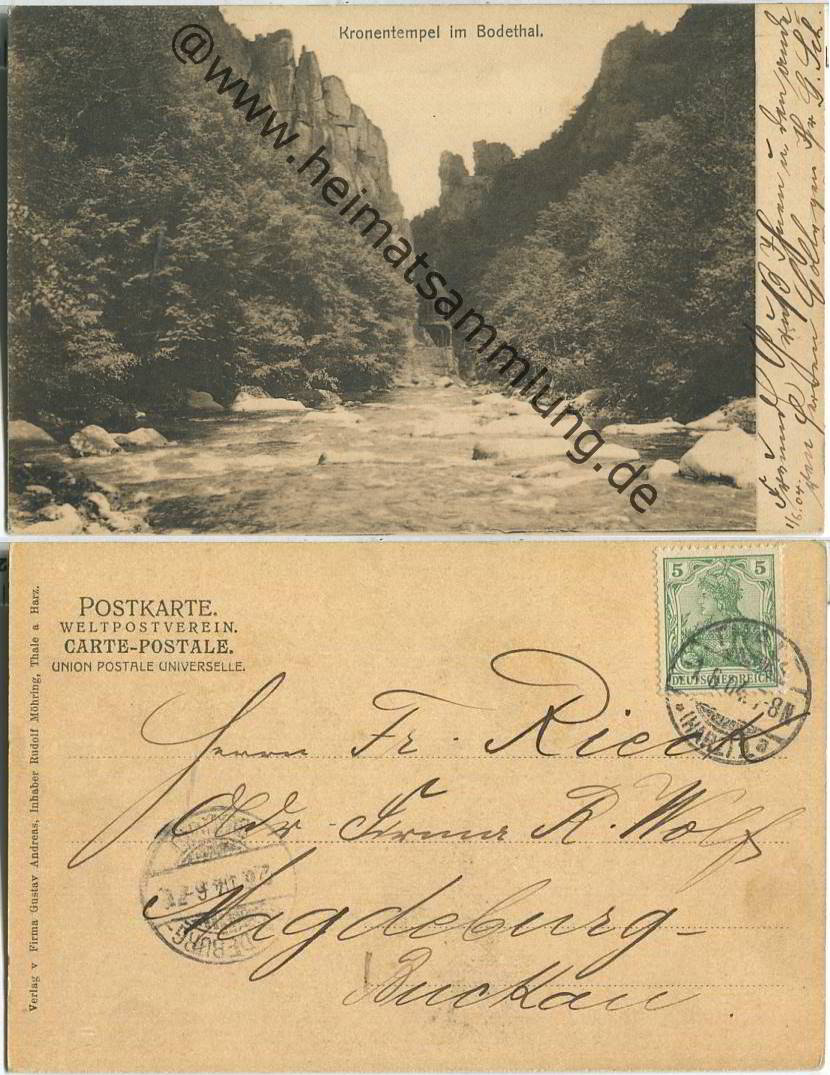 Kronentempel im Bodethal.
@www.heimatsammlung.de
Gruß Ihnen u. den
Herren Collegen Ihr G. Sch.
1/6.04.
POSTKARTE.
WELTPOSTVEREIN.
CARTE-POSTALE.
UNION POSTALE UNIVERSELLE.
Verlag v Firma Gustav Andreas, Inhaber Rudolf Möhring, Thale a Harz.
5 5
DEUTSCHES REICH
(HARZ) a
7-8N
Herrn Fr. Rieck
Adr Firma R. Wolf
Magdeburg-
Buckau